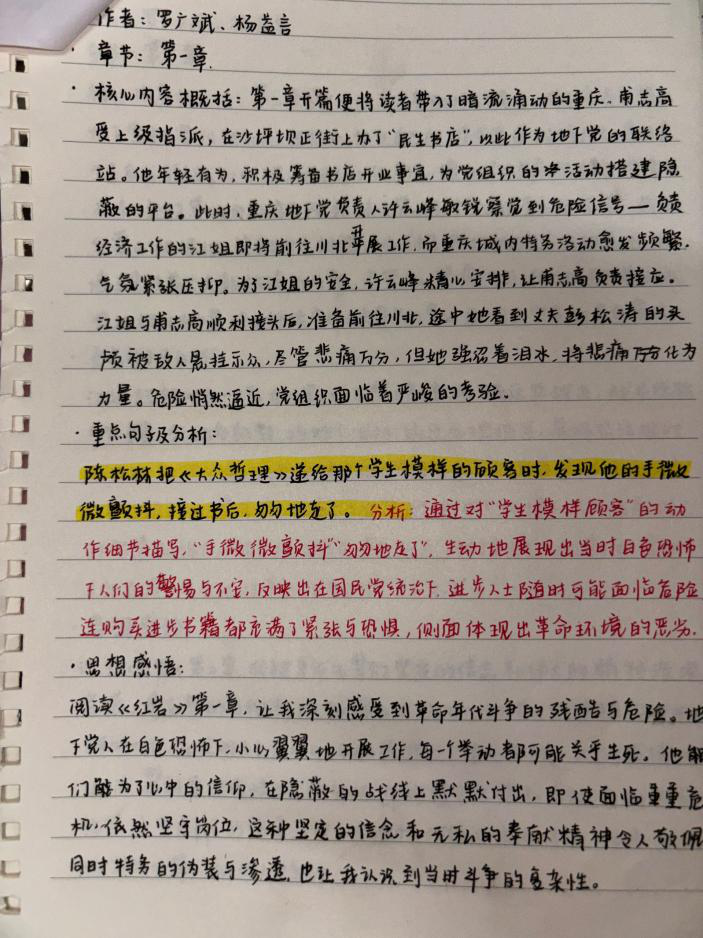 作者：罗广斌、杨益言
·章节：第一章.
·核心内容概括：第一章开篇便将读者带入了暗流涌动的重庆.甫志高
受上级指派，在沙坪坝正街上办了“民生书店”，以此作为地下党的联络
站。他年轻有为，积极筹备书店开业事宜，为党组织的活动搭建隐
蔽的平台。此时，重庆地下党负责人许云峰敏锐察觉到危险信号—负责
经济工作的江姐即将前往川北开展工作，而重庆城内特务活动愈发频繁.
气氛紧张压抑。为了江姐的安全，许云峰精心安排，让甫志高负责接应。
江姐与甫志高顺利接头后，准备前往川北，途中她看到丈夫彭松涛的头
颅被敌人悬挂示众，尽管悲痛万分，但她强忍着泪水，将悲痛万分化为
力量。危险悄然逼近，党组织面临着严峻的考验。
·重点句子及分析：
陈松林把《大众哲理》递给那个学生模样的顾客时，发现他的手微
微颤抖，接过书后，匆匆地走了。分析：通过对“学生模样顾客”的动
作细节描写，“手微微颤抖”“匆匆地走了”，生动地展现出当时白色恐怖
下人们的警惕与不安，反映出在国民党统治下，进步人士随时可能面临危险
连购买进步书籍都充满了紧张与恐惧，侧面体现出革命环境的恶劣.
·思想感悟：
阅读《红岩》第一章，让我深刻感受到革命年代斗争的残酷与危险。地
下党人在白色恐怖下，小心翼翼地开展工作，每一个举动都可能关乎生死。他
们能为了心中的信仰，在隐蔽的战线上默默付出，即使面临重重危
机，依然坚守岗位，这种坚定的信念和无私的奉献精神令人敬佩
同时特务的伪装与渗透，也让我认识到当时斗争的复杂性。